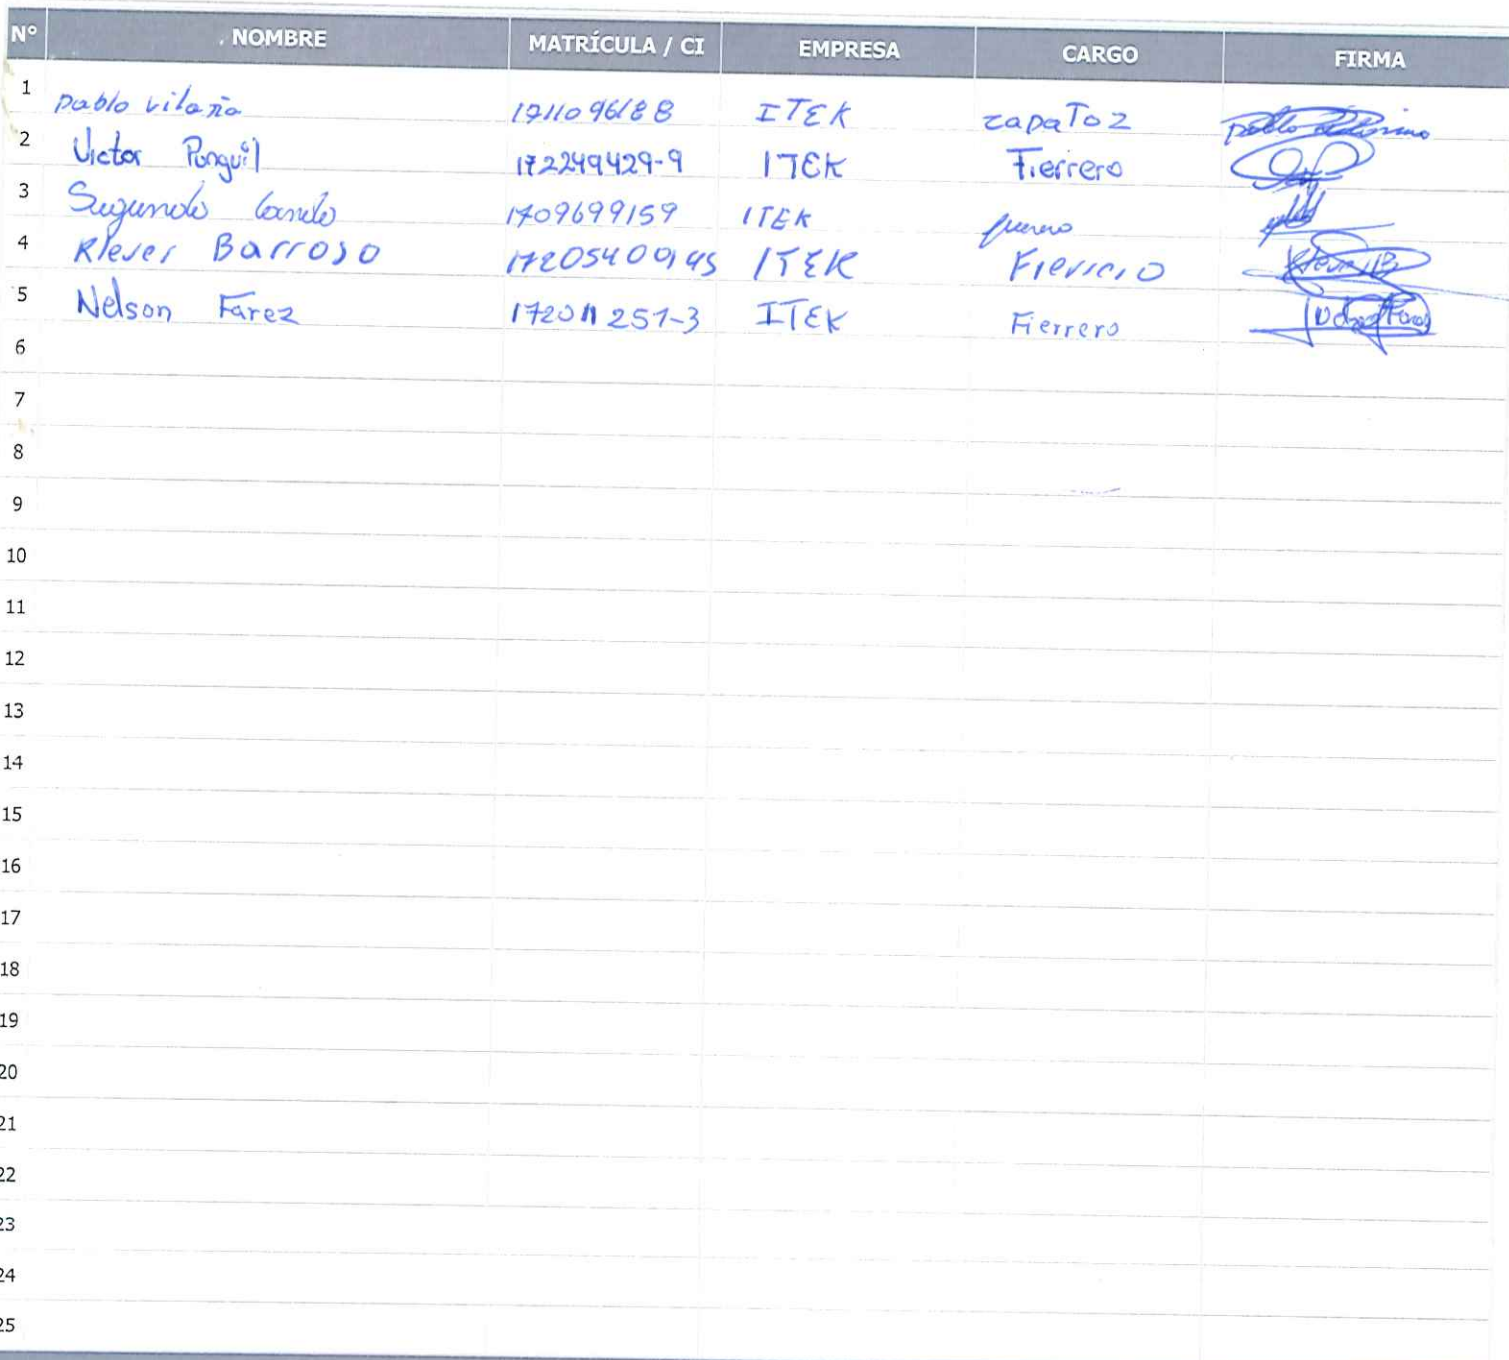 N° NOMBRE MATRÍCULA / CI EMPRESA CARGO FIRMA
1 Pablo vilaña 1711096188 ITEK zapaToz
2 Victor Punguil 172249429-9 ITEK Fierrero
3 Segundo 1709699159 ITEK
4 Klever Barroso ITEK
5 Nelson Farez 172011251-3 ITEK Fierrero
6
7
8
9
10
11
12
13
14
15
16
17
18
19
20
21
22
23
24
25